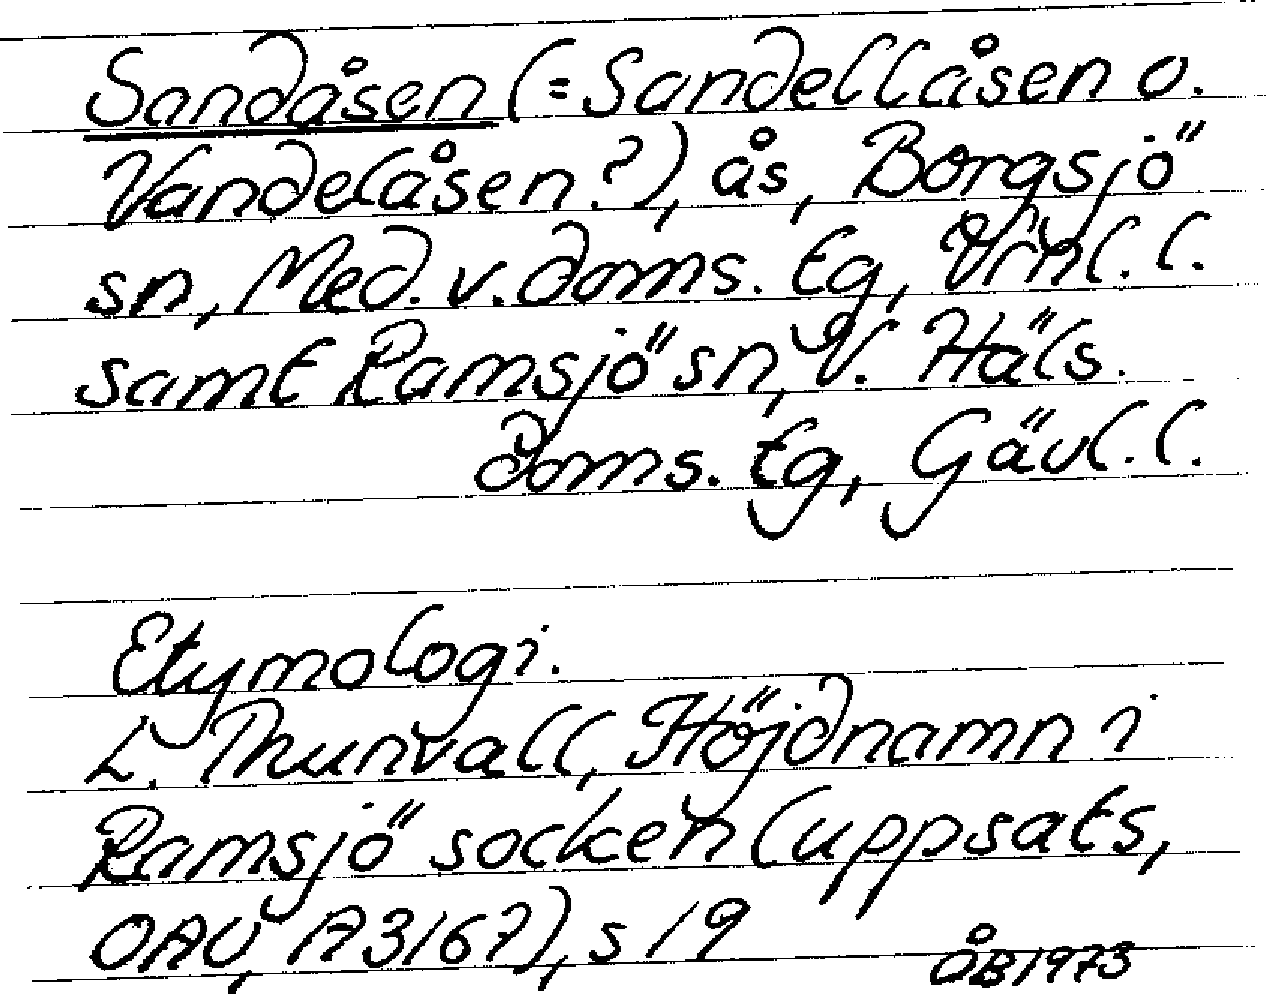 Sandåsen (= Sandellåsen o.
Vandelåsen?), ås, Borgsjö
sn, Med. v. doms. tg, Vrnl. l.
samt Ramsjö sn, V. Häls.
doms. tg, Gävl. l.
Etymologi.
L. Thunvall, Höjdnamn i
Ramsjö socken (uppsats,
OAU, A3167), s 19
ÅB 1973